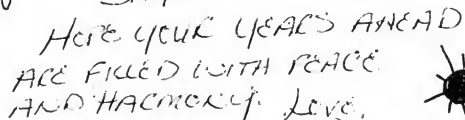 HOPE YOUR YEARS AHEAD
ARE FILLED WITH PEACE
AND HARMONY. Love,